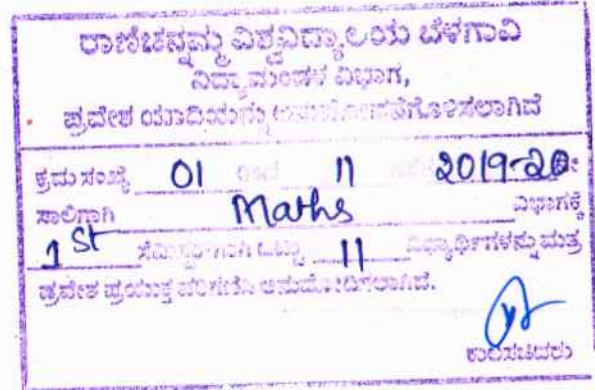 ರಾಣಿಚನ್ನಮ್ಮ ವಿಶ್ವವಿದ್ಯಾಲಯ ಬೆಳಗಾವಿ
ವಿದ್ಯಾಮಂಡಳ ವಿಭಾಗ,
ಪ್ರವೇಶ ಯಾದಿಯನ್ನು ಅನುಮೋದನೆಗೊಳಿಸಲಾಗಿದೆ
ಕ್ರಮ ಸಂಖ್ಯೆ 01 ರಿಂದ 11 2019-20 ನೇ
ಸಾಲಿಗಾಗಿ Maths ವಿಭಾಗಕ್ಕೆ
1st ಸೆಮಿಸ್ಟರ್‌ಗಾಗಿ ಒಟ್ಟು 11 ವಿದ್ಯಾರ್ಥಿಗಳನ್ನು ಮಾತ್ರ
ಪ್ರವೇಶ ಪ್ರಯುಕ್ತ ಅನುಮೋದಿಸಲಾಗಿದೆ.
ಕುಲಸಚಿವರು